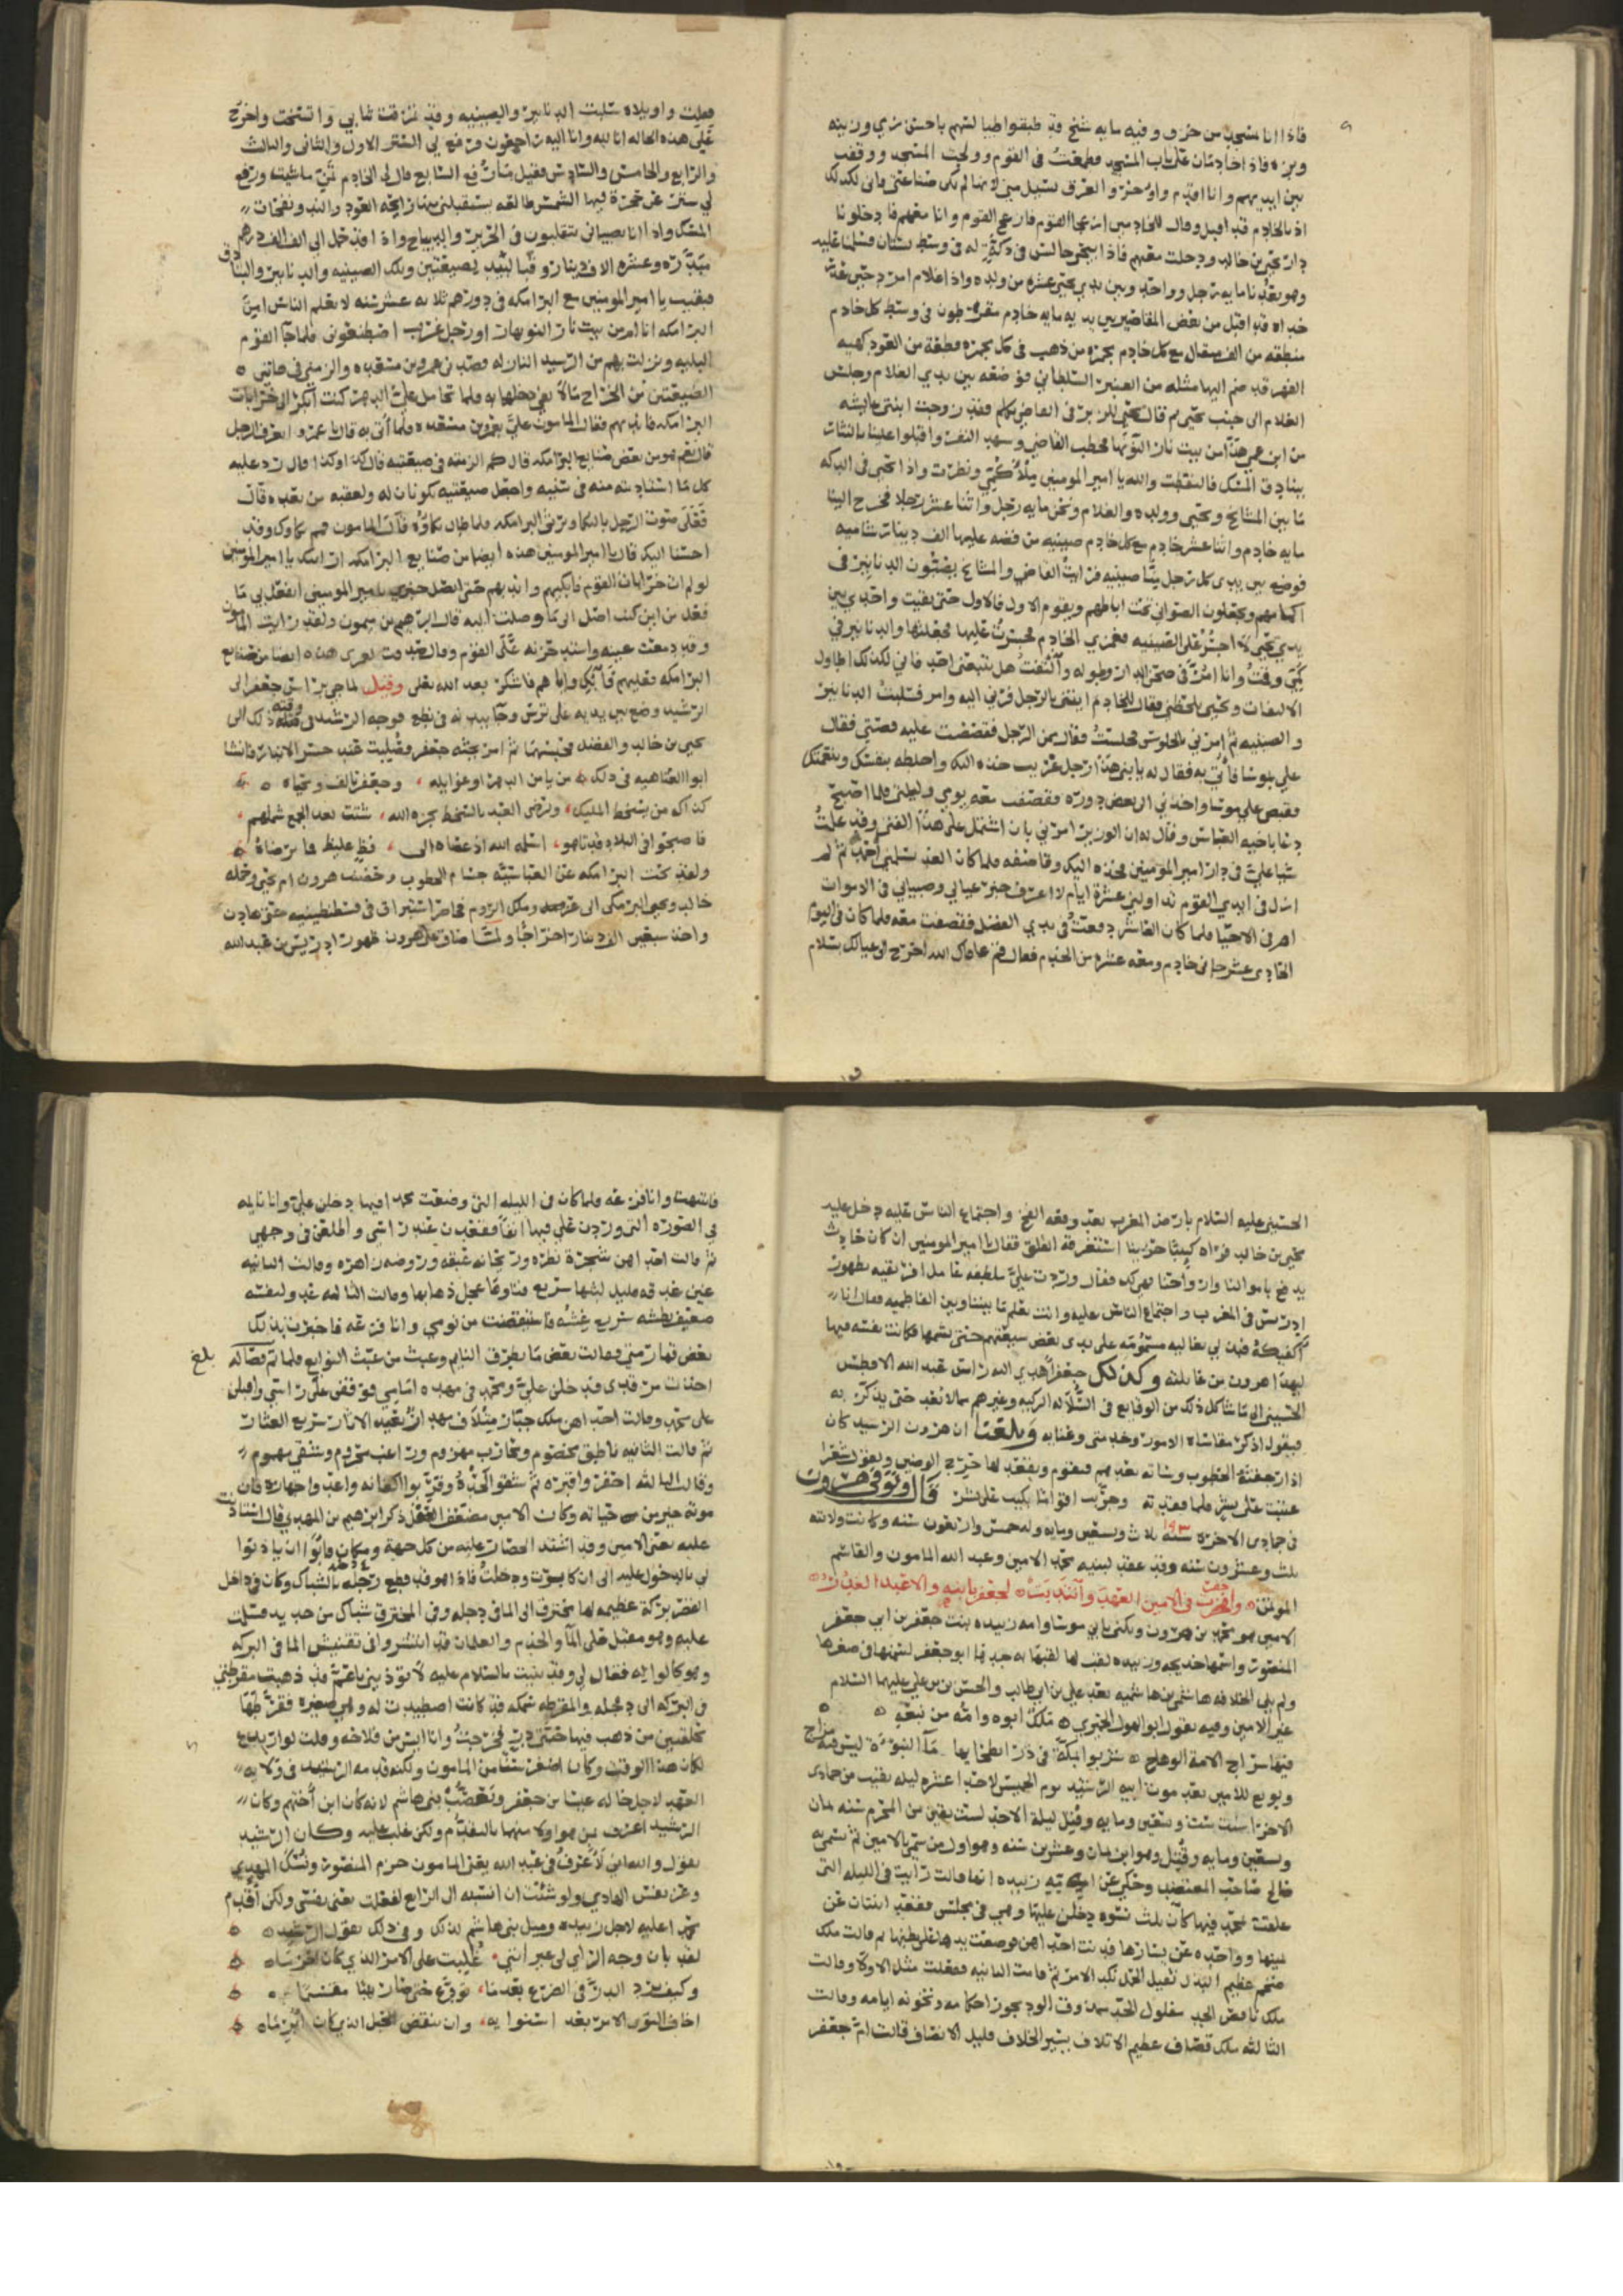 فاذا انا بمسجد من خزف وفيه مايه شيخ قد طبقوا طيالستهم باحسن زي وزينه
وبزه فاذا خادمان على باب المسجد فطمعت في القوم وولجت المسجد ووقفت
بين ايديهم وانا اقدم واوخر والعرق يسيل مني لانها لم تكن صناعتي فاني لكذلك
اذ بالخادم قد اقبل وقال للخادمين ازعجا القوم فازعج القوم وانا معهم فادخلونا
دار يحيى بن خالد ودخلت معهم فاذا بيحيى جالس في دكة له في وسط بستان فسلمنا عليه
وهو يعدنا مايه رجل وواحد وبين يدي يحيى عشره من ولده واذا غلام امرد حين
خداه قد اقبل من بعض المقاصير بين يديه مايه خادم مقرطون في وسط كل خادم
منطقه من الف مثقال مع كل خادم مجمره من ذهب في كل مجمره قطعة من العود كهيه
الفهر قد ضم اليها مثله من العنبر السلطاني فوضعه بين يدي الغلام وجلس
الغلام الى جنب يحيى ثم قال يحيى للزبرقي القاضي تكلم فقد زوجت ابنتي عايشه
من ابن عمي هذا من بيت نار النوبهار فخطب القاضي وشهد النفر واقبلوا علينا بالنثار
ببنادق المسك فالتقطت والله يا امير المومنين ملأ كمي ونظرت واذا يحيى في الدكه
ما بين المشايخ ويحيى وولده والغلام ونحن مايه رجل واثنا عشر رجلا فخرج الينا
مايه خادم واثنا عشر خادم مع كل خادم صينيه من فضه عليها الف دينار شاميه
فوضع بين يدي كل رجل منا صينيه فرايت القاضي والمشايخ يصبون الدنانير في
اكمامهم ويجعلون الصواني تحت اباطهم ويقوم الاول فالاول حتى بقيت وحدي بين
يدي يحيى لا اجسر على الصينيه فغمزني الخادم فجسرت عليها فجعلتها والدنانير في
كمي وقمت وانا امر في صحن الدار وطوله والتفت هل يتبعني احد فاني لكذلك اطاول
الالتفات ويحيى يلحظني فقال للخادم ايتني بالرجل فردني اليه وامر فسلبت الدنانير
والصينيه ثم امرني بالجلوس فجلست فقال ممن الرجل فقصصت عليه قصتي فقال
علي بموسا فاتي به فقال له يا بني هذا رجل غريب خذه اليك واخلطه بنفسك وبنعمتك
فقبض علي موسا واخذني الى بعض دوره فقصفت معه يومي وليلتي فلما اصبح
دعا باخيه العباس وقال له ان الوزير امرني بان اشتمل على هذا الفتى وقد علمت
شغلي في دار امير المومنين فخذه اليك وقاصفه فلما كان الغد تسلمني احمد ثم لم
ازل في ايدي القوم يتداولني عشرة ايام لا اعرف خبر عيالي وصبياني في الاموات
ام في الاحيا فلما كان العاشر دفعت في يدي الفضل فقصفت معه فلما كان في اليوم
الحادي عشر جاني خادم ومعه عشره من الخدم فقال قم عافاك الله اخرج الى عيالك بسلام
فقلت واويلاه سلبت الدنانير والصينيه وقد تمزقت ثيابي واتسخت واخرج
على هذه الحاله انا لله وانا اليه راجعون فرفع لي الستر الاول والثاني والثالث
والرابع والخامس والسادس فقبل ان رفع السابع قال لي الخادم تمن ما شيت ورفع
لي ستر عن حجرة فيها الشمس طالعه يستقبلني منها رايحة العود والند ونفحات
المسك واذا انا بصبياني يتقلبون في الحرير والديباج واذا قد حمل الي الف الف درهم
مبدره وعشره الاف دينار وقبالتين لضيعتين وتلك الصينيه والدنانير والبنادق
فبقيت يا امير المومنين مع البرامكه في دورهم ثلاثه عشر سنه لا يعلم الناس امن
البرامكه انا ام من بيت نار النوبهار او رجل غريب اصطنعوني فلما جا القوم
البليه ونزلت بهم من الرشيد النازله قصدني عمرو بن مسعده والزمني في هاتين
الضيعتين من الخراج مالا يفي دخلهما به فلما تحامل علي الدهر كنت انكر الى خرابات
البرامكه فاندبهم فقال المامون علي بعمرو بن مسعده فلما أتي به قال يا عمرو اتعرف الرجل
قال نعم هو من بعض صنايع البرامكه قال كم الزمته في ضيعتيه قال كذا وكذا قال رد عليه
كل ما استاديته منه في سنيه واجعل ضيعتيه تكونان له ولعقبه من بعده قال
فعلى صوت الرجل بالبكا ورثى البرامكه فلما طال بكاؤه قال المامون فيم بكاوك وقد
احسنا اليك قال يا امير المومنين هذه ايضا من صنايع البرامكه ارايتك يا امير المومنين
لو لم ات خرابات القوم فابكيهم واندبهم حتى اتصل خبري بامير المومنين ففعل بي ما
فعل من اين كنت اصل الى ما وصلت اليه قال ابراهيم بن ميمون ولقد رايت المامون
وقد دمعت عينه واشتد حزنه على القوم وقال صدقت لعمري هذه ايضا من صنايع
البرامكه فعليهم فابك واياهم فاشكر بعد الله تعلى وقيل لما جي براس جعفر الى
الرشيد وضع بين يديه على ترس وجا بيديه في نطع فوجه الرشيد في وقته ذلك الى
يحيى بن خالد والفضل فحبسهما ثم امر بجثه جعفر فصلبت عند جسر الانبار فانشا
ابوا العتاهيه في ذلك من يامن الدهر او غوايله وجعفر تالف ويحياه
كذاك من يسخط المليك وترضى العبد بالسخط يجزه الله شتت بعد الجمع شملهم
فاصبحوا في البلاد قد تاهو اسلمه الله اذ عصاه الى فظ غليظ فما ترضاه
ولقد كنت البرامكه عن العباسيه جسام الخطوب وحضنت هرون ام يحيى ودخله
خالد ويحيى البرمكي الى وملك الروم فحاصر استبراق في قسطنطينيه حتى عادن
واخذ سبعين الف دينار اخراجا ولما ضاق على هرون ظهور ادريس بن عبد الله
الحسيني عليه السلام بارض المغرب بعد وقعه الفخ واجتماع الناس عليه دخل عليه
يحيى بن خالد فراه كييبا حزينا استغرقه القلق فقال يا امير المومنين ان كان حادث
يدفع باموالنا وارواحنا فهي لك فقال وردت علي ملطفه عامل افريقيه بظهور
ادريس في المغرب واجتماع الناس عليه وانت تعلم ما بيننا وبين الفاطميه فقال انا
اكفيكه فبعث لي بغاليه مسمومه على يدي بعض شيعتهم حتى شمها فكانت نفسه فيها
ليهدا هرون من غايلته وكذلك جعفرا هدي اليه راس عبد الله الافطس
الحسيني الى ما شاكل ذلك من الوقايع في التركيه وغيرهم مما لا نعيد حتى يذكر به
فيقول اذكر مقاساه الامور وخدمتي وعنايه وبلغنا ان هرون الرشيد كان
اذا رجفته الخطوب وساته بعدهم فيقوم ويقعد لها حرج المومنين ويقول شعرا
عتبت على بشر فلما فقدته وجربت اقواما بكيت على بشر قال وتوفي هرون
في جمادى الاخره سنه ١٩٣ ثلاث وتسعين ومايه وله خمس واربعون سنه وكانت ولايته
ثلث وعشرون سنه وقد عقد لبنيه محمد الامين وعبد الله المامون والقاسم
المؤتمن
الامين هو محمد بن هرون ويكنى بابي موسا وامه زبيده بنت جعفر بن ابي جعفر
المنصور واسمها خديجه وزبيده لقب لها لقبها به جدها ابو جعفر لسمنها في صغرها
ولم يلي الخلافه هاشمي بن هاشميه بعد علي بن ابي طالب والحسن بن علي عليهما السلام
غير الامين وفيه يقول ابو الهول الحميري ملك ابوه وامه من نبعة
منها سراج الامة الوهاج شربوا بمكة في ذرا بطحايها ما النبوه ليس فيه مزاج
وبويع للامين بعد موت ابيه الرشيد يوم الخميس لاحدا عشره ليله بقيت من جمادى
وتسعين ومايه وقتل وهو ابن ثمان وعشرين سنه وهو اول من سمي بالامين ثم تسمى به
صالح صاحب المعتضد وحكي عن زبيده انها قالت رايت في الليله التي
علقت بمحمد فيها كان ثلث نسوه دخلن عليها وهي في مجلس فقعد اثنتان عن
يمينها وواحده عن يسارها فدنت احداهن فوضعت يدها على بطنها ثم قالت ملك
ضخم عظيم البذل ثقيل الحمل نكد الامر ثم قامت الثانيه ففعلت مثل الاولى وقالت
ملك ناقص الجد مفلول الحد ممذوق الود يجور احكامه وتخونه ايامه وقالت
الثالثه ملك قصاف عظيم الاتلاف يسير الخلاف قليل الانصاف قالت ام جعفر
فانتبهت وانا فزعه فلما كان في الليله التي وضعت محمدا فيها دخلن علي وانا نايمه
في الصوره التي وردن علي فيها انفا فقعدن عند راسي واطلعن في وجهي
ثم قالت احداهن شجرة نضره وريحانه غبقه وروضه زاهره وقالت الثانيه
عين غدقه قليل لبثها سريع فناوها عجل ذهابها وقالت الثالثه عدو لنفسه
ضعيف بطشه سريع غشه فاستيقضت من نومي وانا فزعه فاخبرت بذلك
بعض قهارمتي فقالت بعض ما يطرق النايم وعبث من عبث التوابع فلما تم فصاله
بلغ
اخذت مرقدي فدخلن علي ومحمد في مهده امامي فوقفن على راسي واقبلن
على محمد وقالت احداهن ملك جبار متلاف مهذار بعيد الاثار سريع العثار
ثم قالت الثانيه ناطق مخصوم ومحارب مهزوم وراغب محروم وشقي مهموم
وقالت الثالثه احفروا قبره ثم شقوا لحده وقربوا اكفانه واعدوا جهازه فان
موته خير من حياته وكان الامين مضعفا لعقل ذكر ابرهيم بن المهدي قال استاذنت
عليه يعني الامين وقد اشتد الحصار عليه من كل جهة ومكان فابوا ان ياذنوا
لي بالدخول عليه الى ان كابرت ودخلت فاذا هو قد قطع دجله بالشباك وكان في داخل
القصر بركة عظيمه لها مخترق الى الما في دجله وفي المخترق شباك من حديد فسلمت
عليه وهو مقبل على الما والخدم والغلمان قد انتشروا في تفتيش الما في البركه
وهو كالواله فقال لي وقد ثنيت بالسلام عليه لا توذيني يا عم قد ذهبت مقرطتي
في البركه الى دجله والمقرطه سمكه قد كانت اصطيدت له وهي صغيره فقرطها
بحلقتين من ذهب فيها حبتي در فخرجت وانا ايس من فلاحه وقلت لو ارتدع
لكان هذا الوقت وكان اصغر سنا من المامون ولكنه قدمه الرشيد في ولايه
العهد لاجل خاله عيسا بن جعفر وتعصب بني هاشم لانه كان ابن اختهم وكان
الرشيد اعرف بمن هو اولا منهما بالتقدم ولكن غلب عليه وكان الرشيد
يقول والله اني لأعرف في عبد الله يعني المامون حزم المنصور ونسك المهدي
وعز نفس الهادي ولو شئت ان انسبه الى الرابع لفعلت يعني نفسي ولكن أقدم
محمدا عليه لاجل زبيده وميل بني هاشم لذلك وفي ذلك يقول الرشيد
لقد بان وجه الراي لي غير أنني غلبت على الامر الذي كان احزما
وكيف يرد الدر في الضرع بعدما توزع حتى صار نهبا مقسما
اخاف التوى الامر بعد استوايه وان ينقض الحبل الذي كان ابرما